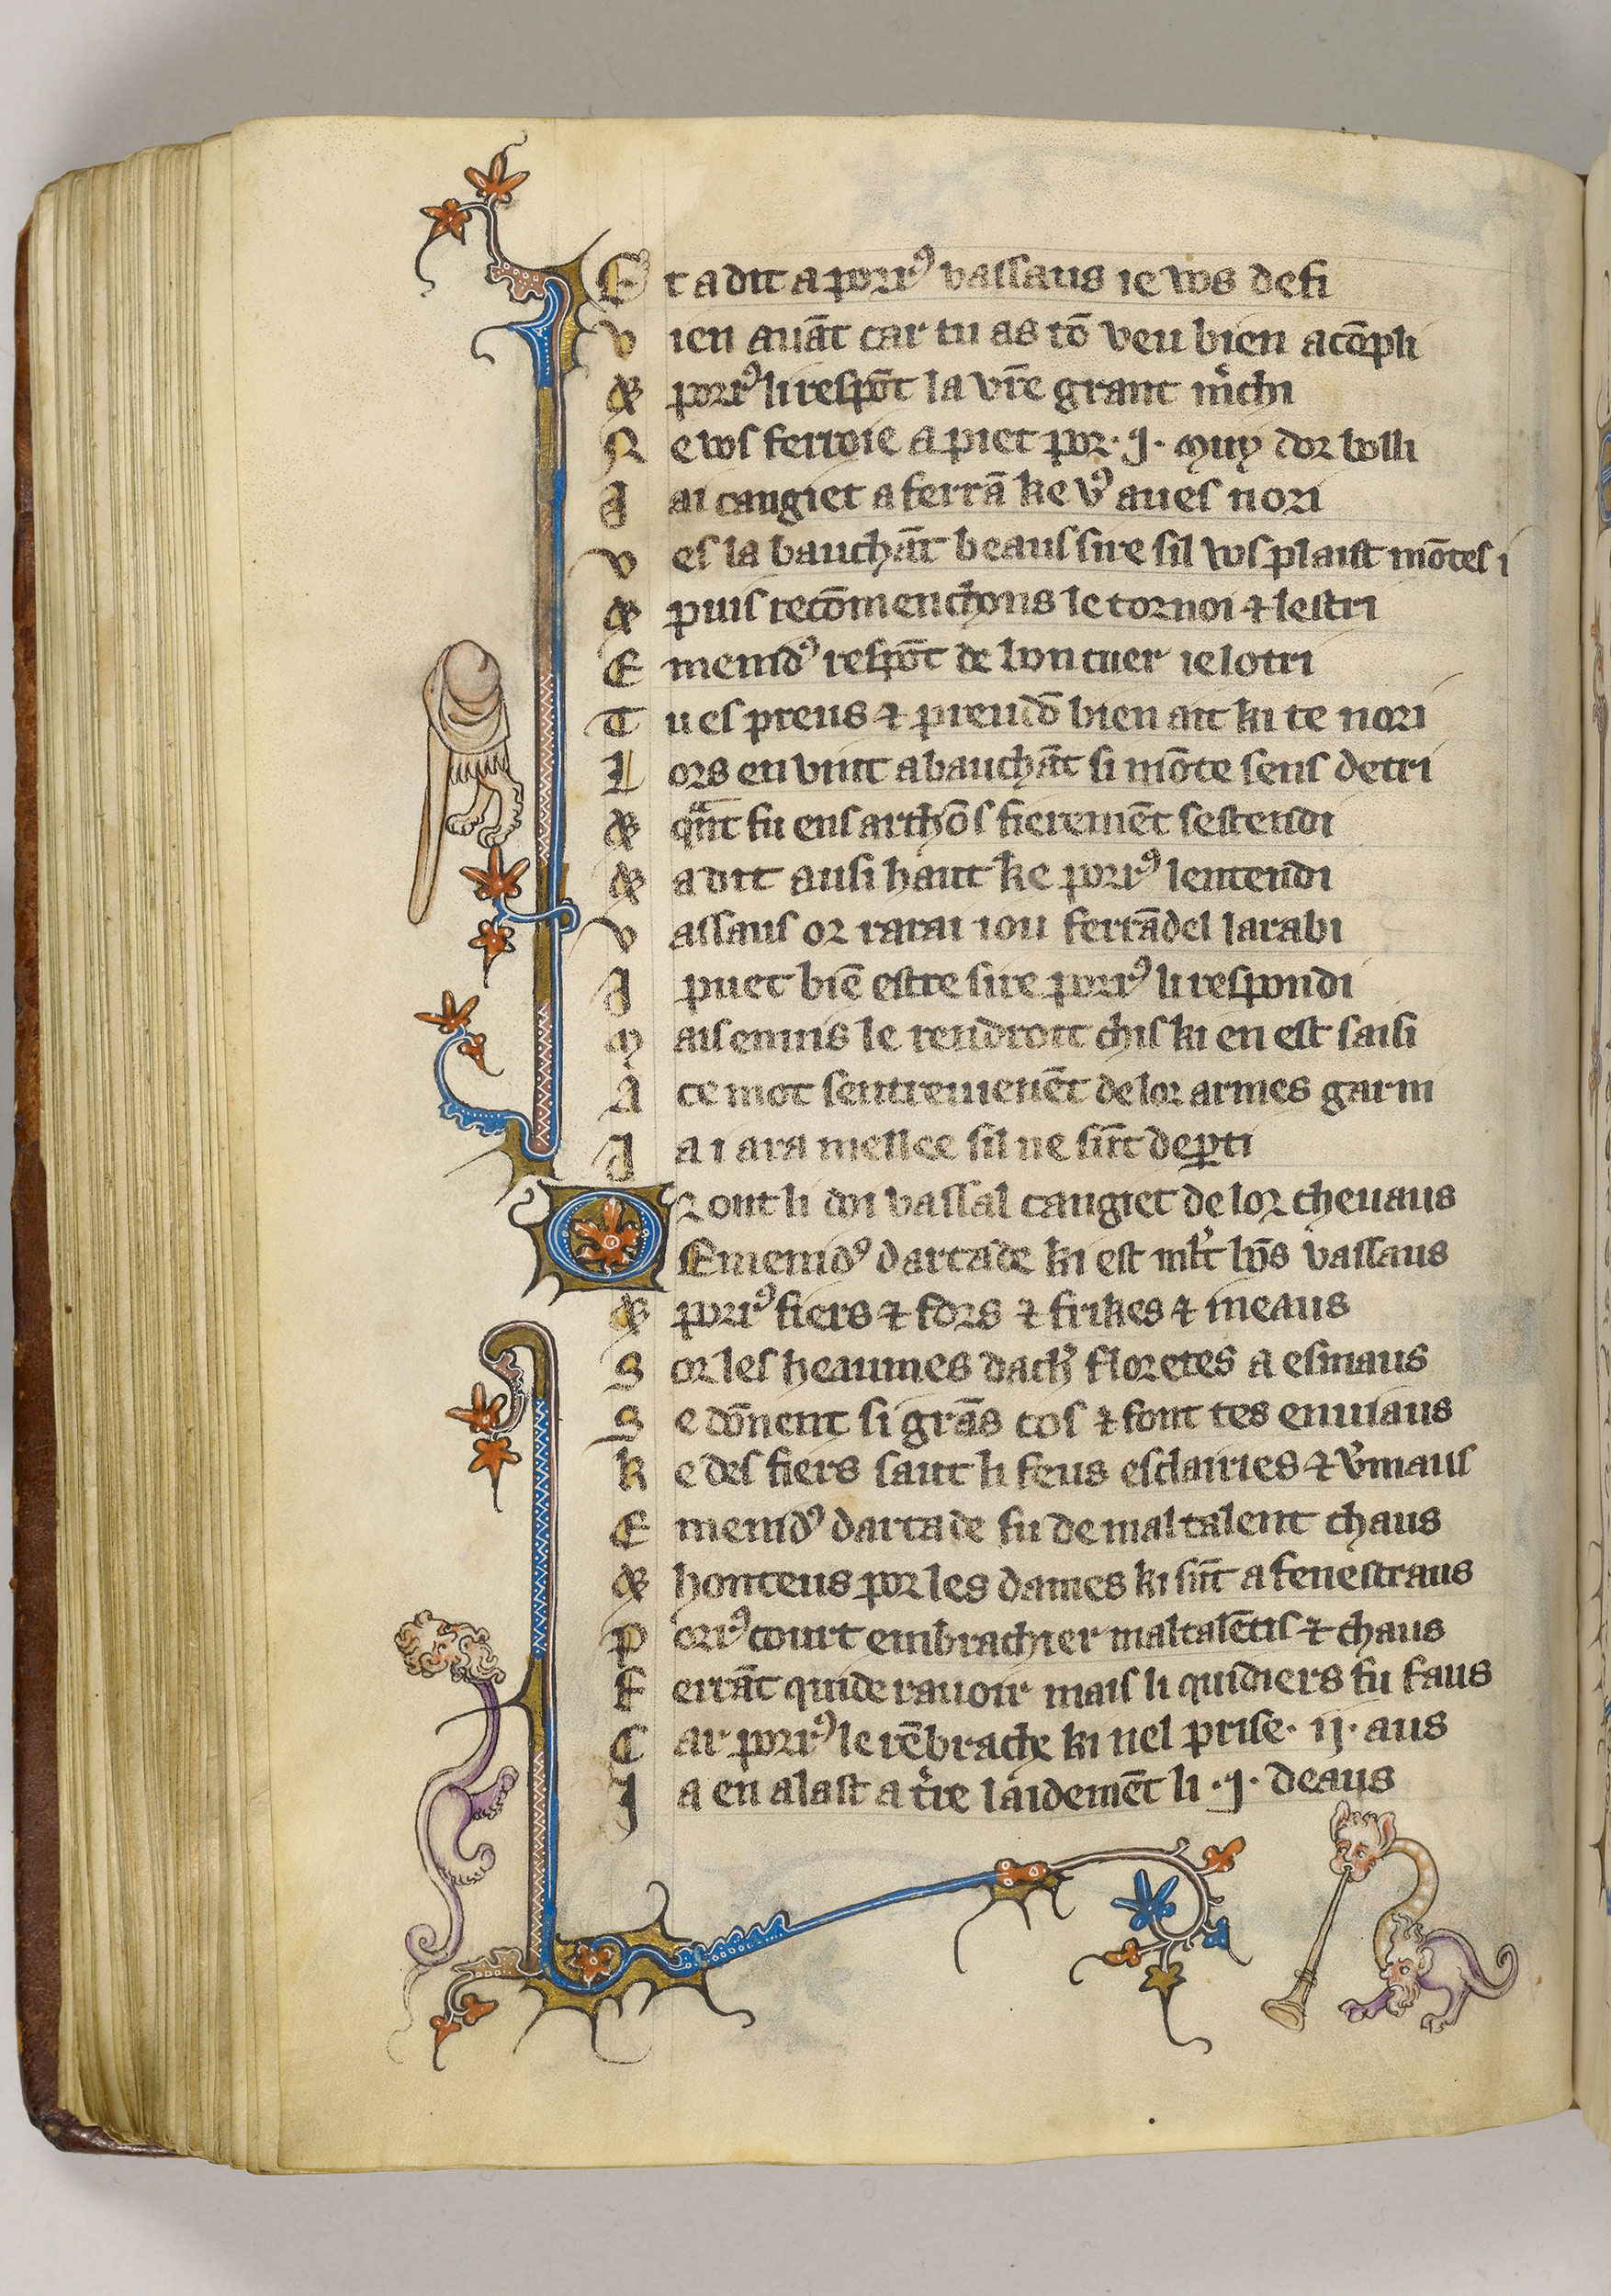 Et a dit a porrꝰ vassaus ie vos defi
vien auãt car tu as tõ veu bien acõpli
& porrꝰ li respõt la vr̃e grant m̾chi
Ne vos ferroie a piet por .j. muy dor bolli
Jai cangiet a ferrã ke vꝰ aues nori
ves la bauchãt beaus sire sil vos plaist mõtes i
& puis recõmenchons le tornoi ⁊ lestri
Emenidꝰ respõt de bon cuer ie lotri
Tu es preus ⁊ preudõ bien ait ki te nori
Lors en vint a bauchãt si mõte sens detri
& qãnt fu ens archõs fieremẽt sestendi
& a dit ausi haut ke porrꝰ lentendi
vassaus or rarai iou ferrãdel larabi
J puet biẽ estre sire porrꝰ li respondi
Mais enuis le rendroit chis ki en est saisi
A ce mot sentreuienẽt de lor armes garni
Ja i ara mellee sil ne sũt deꝑti
Or ont li doi vassal cangiet de lor cheuaus
Emenidꝰ dartade ki est ml̾t bõs vassaus
& porrꝰ fiers ⁊ fors ⁊ frikes ⁊ ineaus
Sor les heaumes dach̾ floretes a esmaus
Se dõnent si grãs cos ⁊ font tes enuiaus
ke des fiers saut li feus esclairies ⁊ v̾maus
Emenidꝰ dartade fu de mal talent chaus
& honteus por les dames ki sũt a fenestraus
porrꝰ court embrachier maltalẽtis ⁊ chaus
Ferrãt quide rauoir mais li quidiers fu faus
Car porrꝰ le rẽbrache ki nel prise .ij. aus
Ja en alast a t̾re laidemẽt li .j. deaus